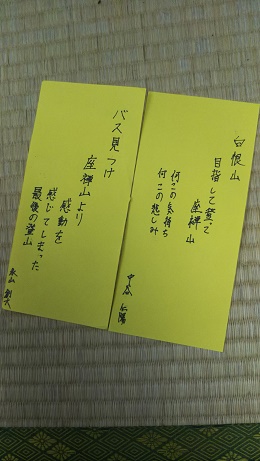 白根山
目指して登って
座禅山
何この気持ち
何この悲しみ
中谷 仁陽
バス見つけ
座禅山より
感動を
感じてしまった
最後の登山
永山 創大